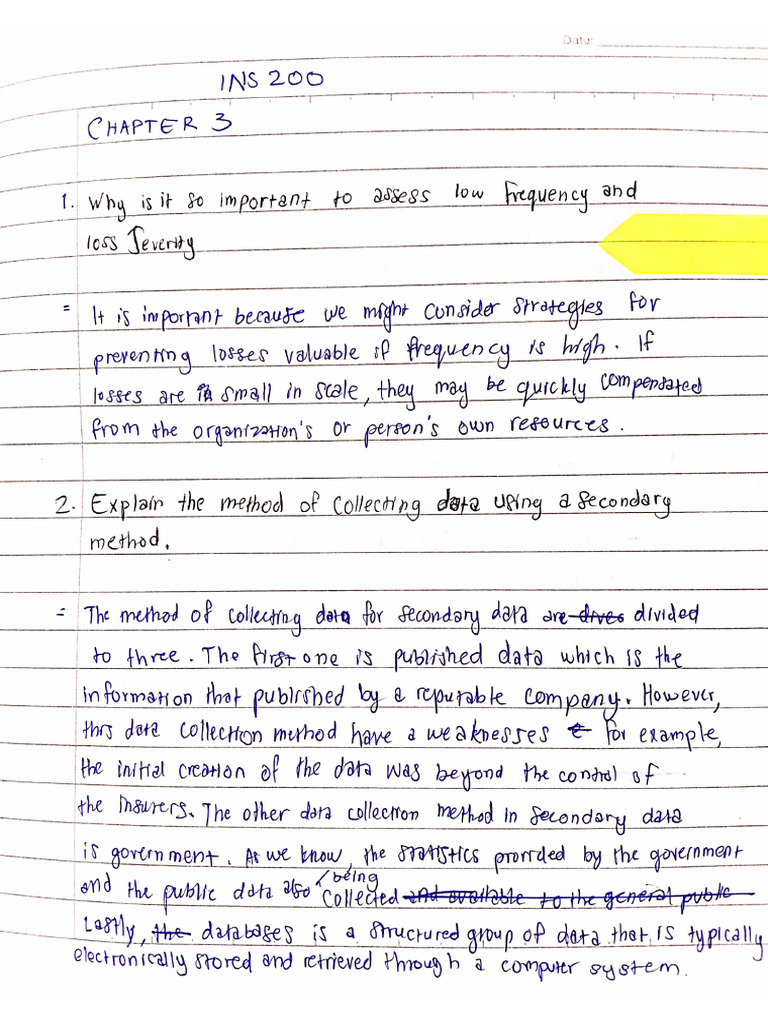 Date:
INS 200
CHAPTER 3
1. Why is it so important to assess low frequency and
loss Severity
= It is important because we might consider strategies for
preventing losses valuable if frequency is high. If
losses are in small in scale, they may be quickly compensated
from the organization's or person's own resources.
2. Explain the method of collecting data using a secondary
method.
= The method of collecting data for secondary data are dives divided
to three. The first one is published data which is the
information that published by a reputable company. However,
this data collection method have a weaknesses for example,
the initial creation of the data was beyond the control of
the insurers. The other data collection method in secondary data
is government. As we know, the statistics provided by the government
and the public data also being collected and available to the general public
Lastly, the databases is a structured group of data that is typically
electronically stored and retrieved through a computer system.